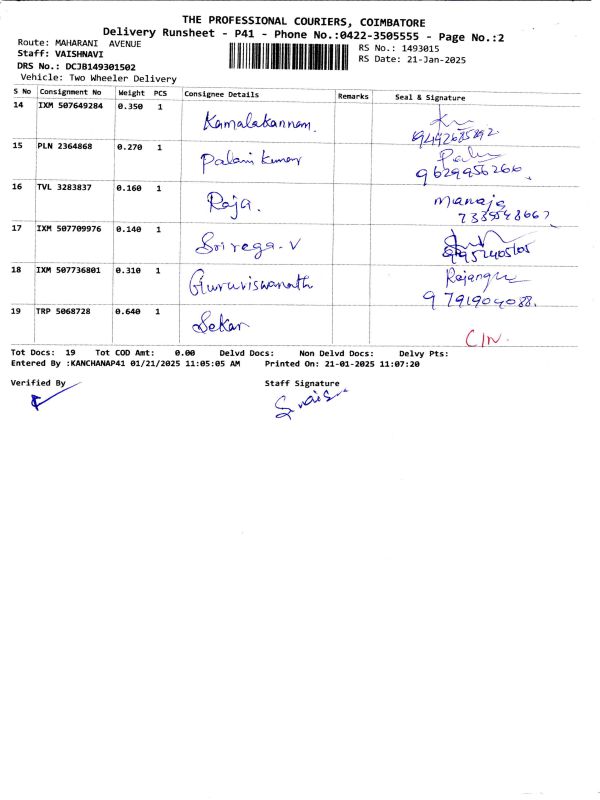 THE PROFESSIONAL COURIERS, COIMBATORE
Delivery Runsheet - P41 - Phone No.:0422-3505555 - Page No.:2
Route: MAHARANI AVENUE
RS No.: 1493015
Staff: VAISHNAVI
RS Date: 21-Jan-2025
DRS No.: DCJB149301502
Vehicle: Two Wheeler Delivery
S No Consignment No Weight PCS Consignee Details Remarks Seal & Signature
14 IXM 507649284 0.350 1 Kamalakannam.
15 PLN 2364868 0.270 1 Palani Kumar
9629956266
16 TVL 3283837 0.160 1 Raja. Manoja
17 IXM 507709976 0.140 1 Sri rega-V
18 IXM 507736801 0.310 1 Guruviswanath
9791904088.
19 TRP 5068728 0.640 1 Sekar
C/N.
Tot Docs: 19 Tot COD Amt: 0.00 Delvd Docs: Non Delvd Docs: Delvy Pts:
Entered By :KANCHANAP41 01/21/2025 11:05:05 AM Printed On: 21-01-2025 11:07:20
Verified By Staff Signature